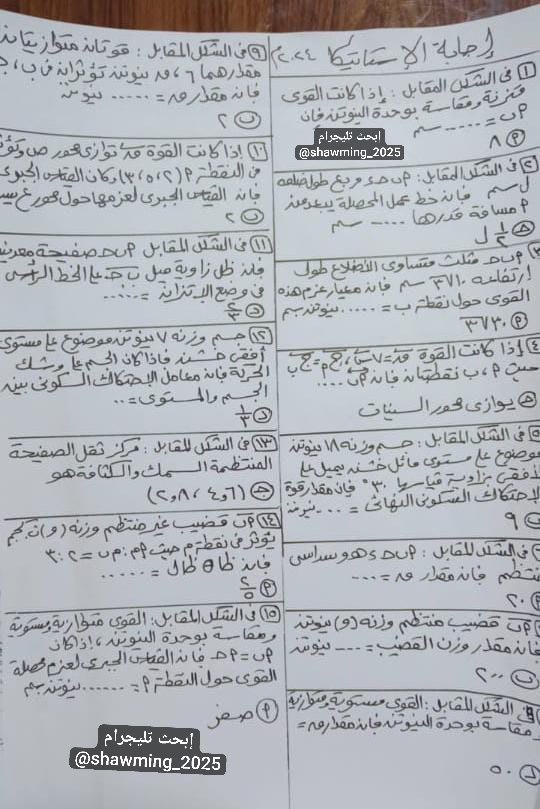 إجابة الإستاتيكا ٢٠٢٤م
١ في الشكل المقابل : إذا كانت القوى
متزنة ومقاسة بوحدة النيوتن فإن
سم
٨
إبحث تليجرام
@shawming_2025
٢ في الشكل المقابل :
ل سم فإن خط عمل المحصلة يبعد عن
مسافة قدرها ..... سم
١/٢ ل
٣ مثلث متساوى الأضلاع طول
سم فإن معيار عزم هذه
القوى حول نقطة ب = ..... نيوتن.سم
٤ إذا كانت القوة
ب نقطتان فإن
يوازى محور السينات
في الشكل المقابل : جسم وزنه ١٨ نيوتن
موضوع على مستوى مائل خشن يميل على
الأفقى بزاوية قياسها ٣٠° فإن مقدار قوة
الاحتكاك السكونى النهائى = ... نيوتن
٩
في الشكل المقابل : سداسى
منتظم فإن مقدار
٢٠
قضيب منتظم وزنه (و) نيوتن
فإن مقدار وزن القضيب = ... نيوتن
٢٠٠
في الشكل المقابل : القوى مستوية ومتوازية
ومقاسة بوحدة النيوتن فإن مقدار
٥٠
٩ في الشكل المقابل : قوتان متوازيتان
مقدارهما ٦ ، نيوتن تؤثران في ب ،
فإن مقدار = ..... نيوتن
٢
١٠ إذا كانت القوة توازى محور ص وتؤثر
في النقطة (٢،٥،٣) وكان القياس الجبرى
فإن القياس الجبرى لعزمها حول محور ع
٢
١١ في الشكل المقابل صفيحة معدنية
فإن ظل زاوية ميل على الخط الرأسى
في وضع الإتزان = .....
٢/٣
١٢ جسم وزنه ٧ نيوتن موضوع على مستوى
أفقى خشن فإذا كان الجسم على وشك
الحركة فإن معامل الاحتكاك السكونى بين
الجسم والمستوى = ..
١/٣
١٣ في الشكل المقابل : مركز ثقل الصفيحة
المنتظمة السمك والكثافة هو
١٤ قضيب غير منتظم وزنه (و) ث.كجم
يؤثر في نقطة م حيث = ٢ : ٣
فإن
٢/٥
١٥ في الشكل المقابل : القوى متوازية ومستوية
ومقاسة بوحدة النيوتن ، إذا كان
فإن القياس الجبرى لعزم محصلة
القوى حول النقطة = ...... نيوتن.سم
صفر
إبحث تليجرام
@shawming_2025